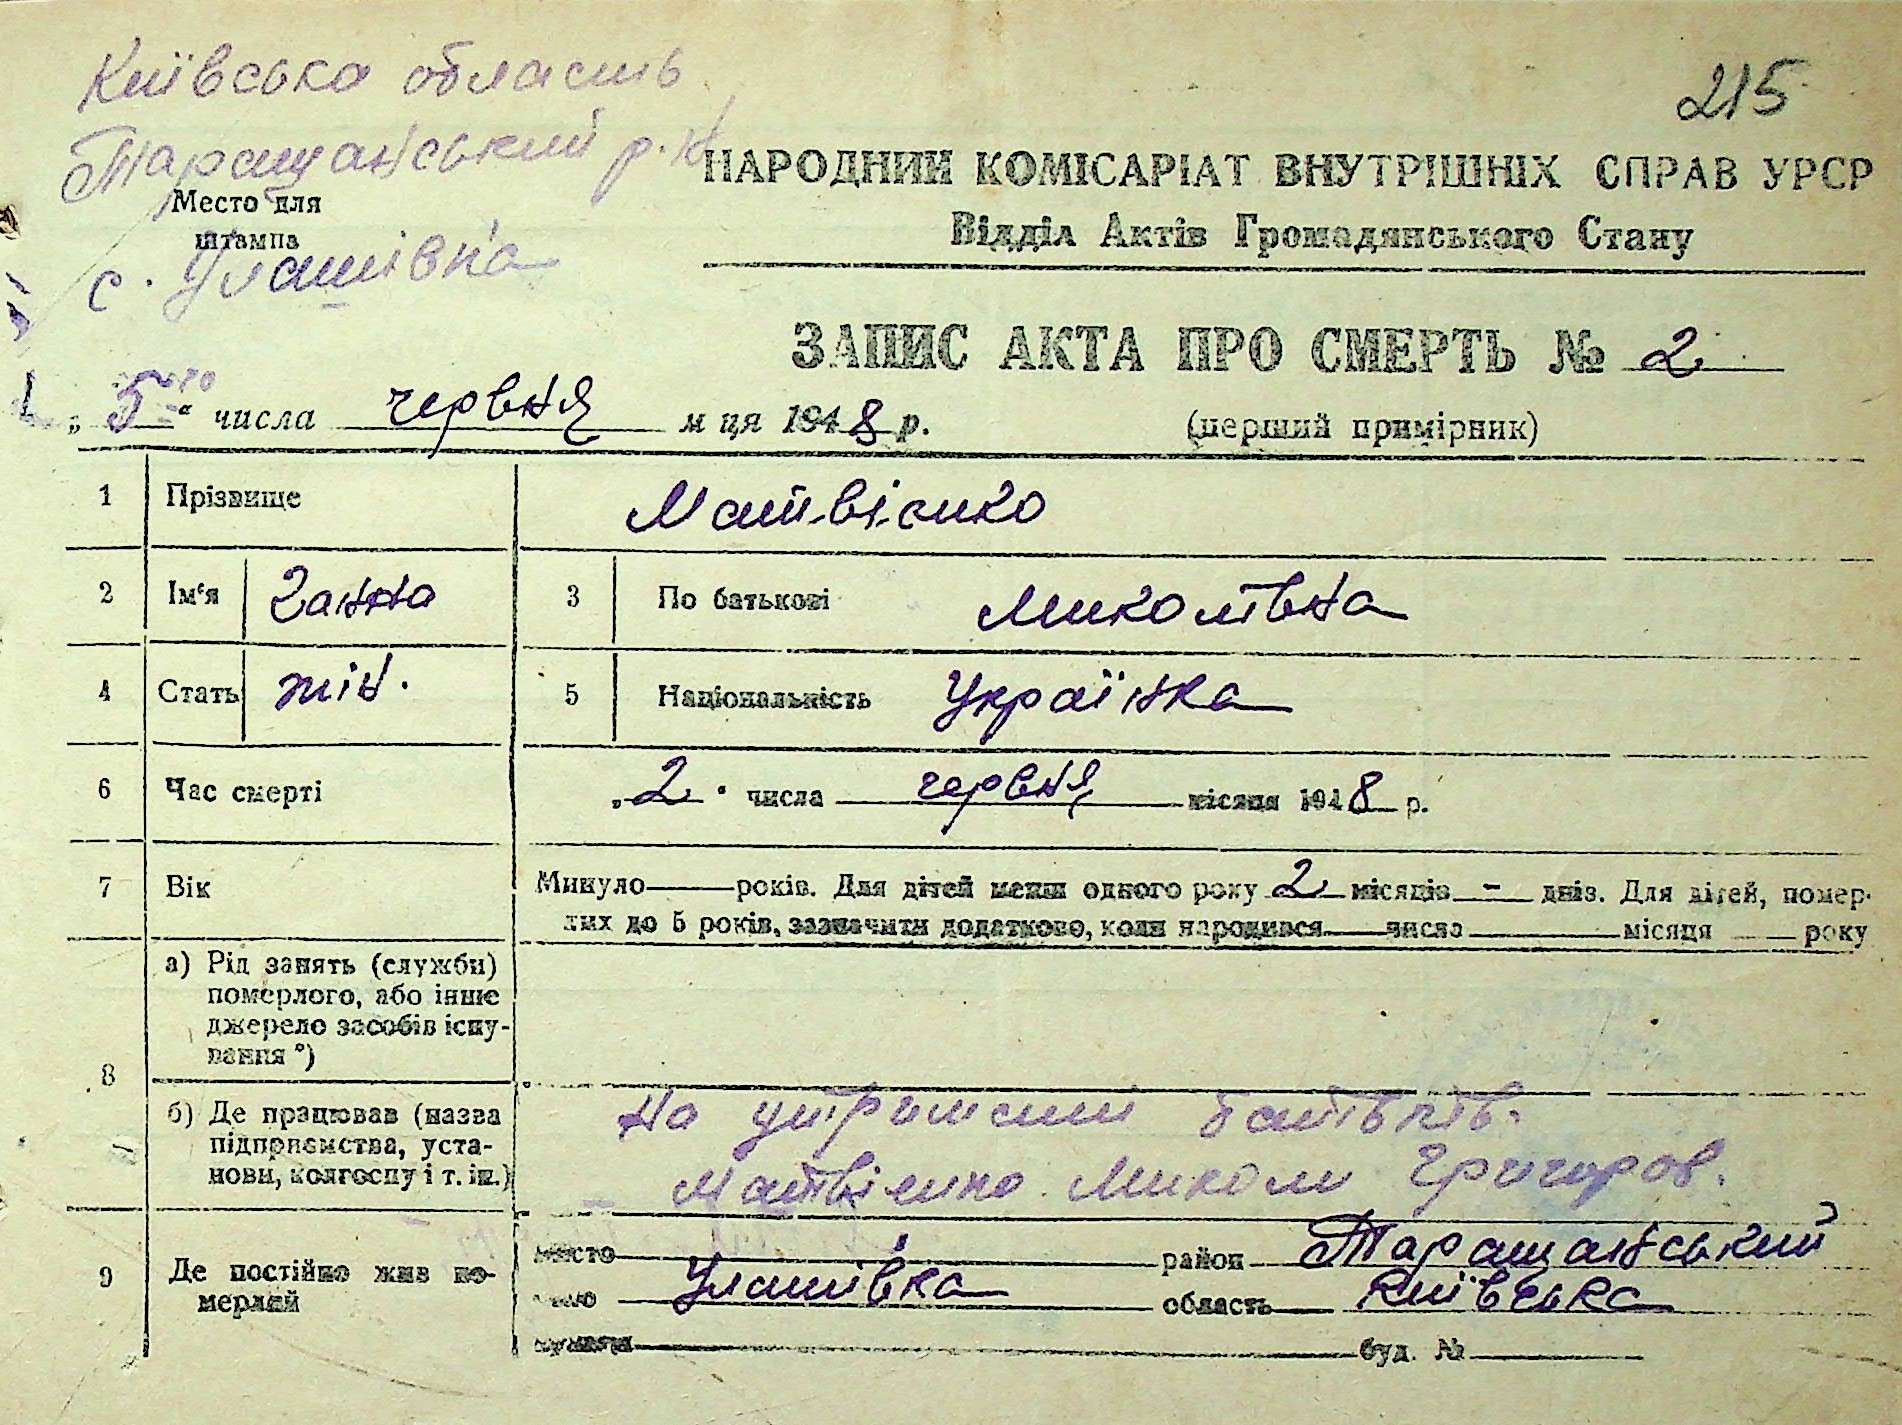 Київська область
215
Таращанський р.н
НАРОДНИЙ КОМІСАРІАТ ВНУТРІШНІХ СПРАВ УРСР
Место для
штампа
Відділ Актів Громадянського Стану
с. Улашівка
ЗАПИС АКТА ПРО СМЕРТЬ № 2
„ 5 “ числа червня м ця 1948 р.
(перший примірник)
1 Прізвище Матвієнко
2 Ім‘я Ганна 3 По батькові Миколівна
4 Стать жін. 5 Національність Українка
6 Час смерті „ 2 “ числа червня місяця 1948 р.
7 Вік Минуло років. Для дітей менш одного року 2 місяців - днів. Для дітей, помер-
лих до 5 років, зазначити додатково, коли народився числа місяця року
8 а) Рід занять (служби)
померлого, або інше
джерело засобів існу-
вання *)
б) Де працював (назва
підприємства, уста-
нови, колгоспу і т. ін.)
На утриманні батьків.
Матвієнко Миколи Григоров.
9 Де постійно жив по-
мерлий
місто район Таращанський
село Улашівка область Київська
вулиця буд. №